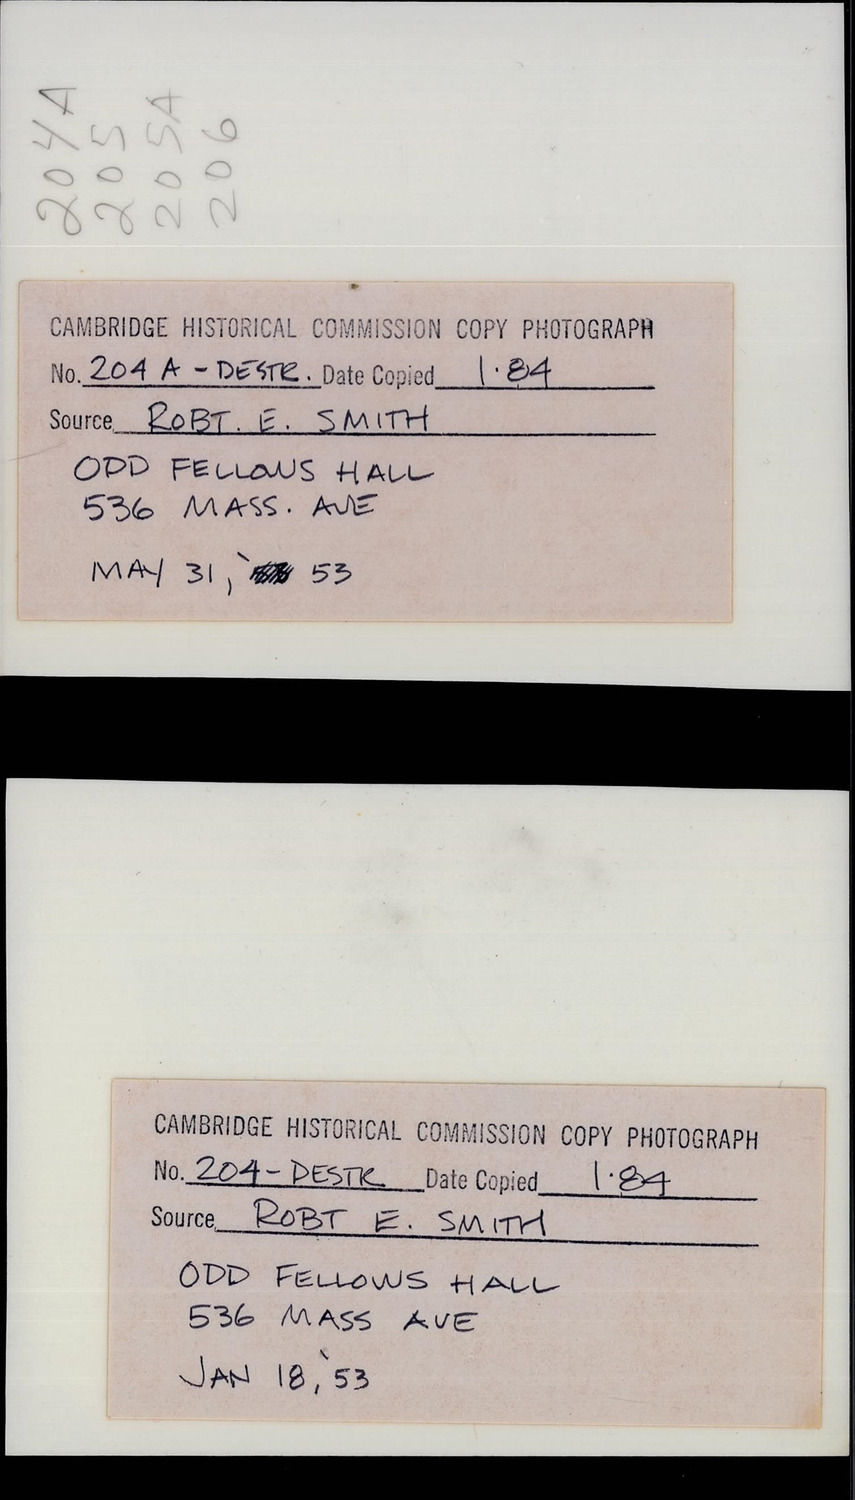 204A
205
205A
206
CAMBRIDGE HISTORICAL COMMISSION COPY PHOTOGRAPH
No. 204 A - DESTR. Date Copied 1·84
Source ROBT. E. SMITH
ODD FELLOWS HALL
536 MASS. AVE
MAY 31, ' 53
CAMBRIDGE HISTORICAL COMMISSION COPY PHOTOGRAPH
No. 204 - DESTR Date Copied 1·84
Source ROBT E. SMITH
ODD FELLOWS HALL
536 MASS AVE
JAN 18, '53